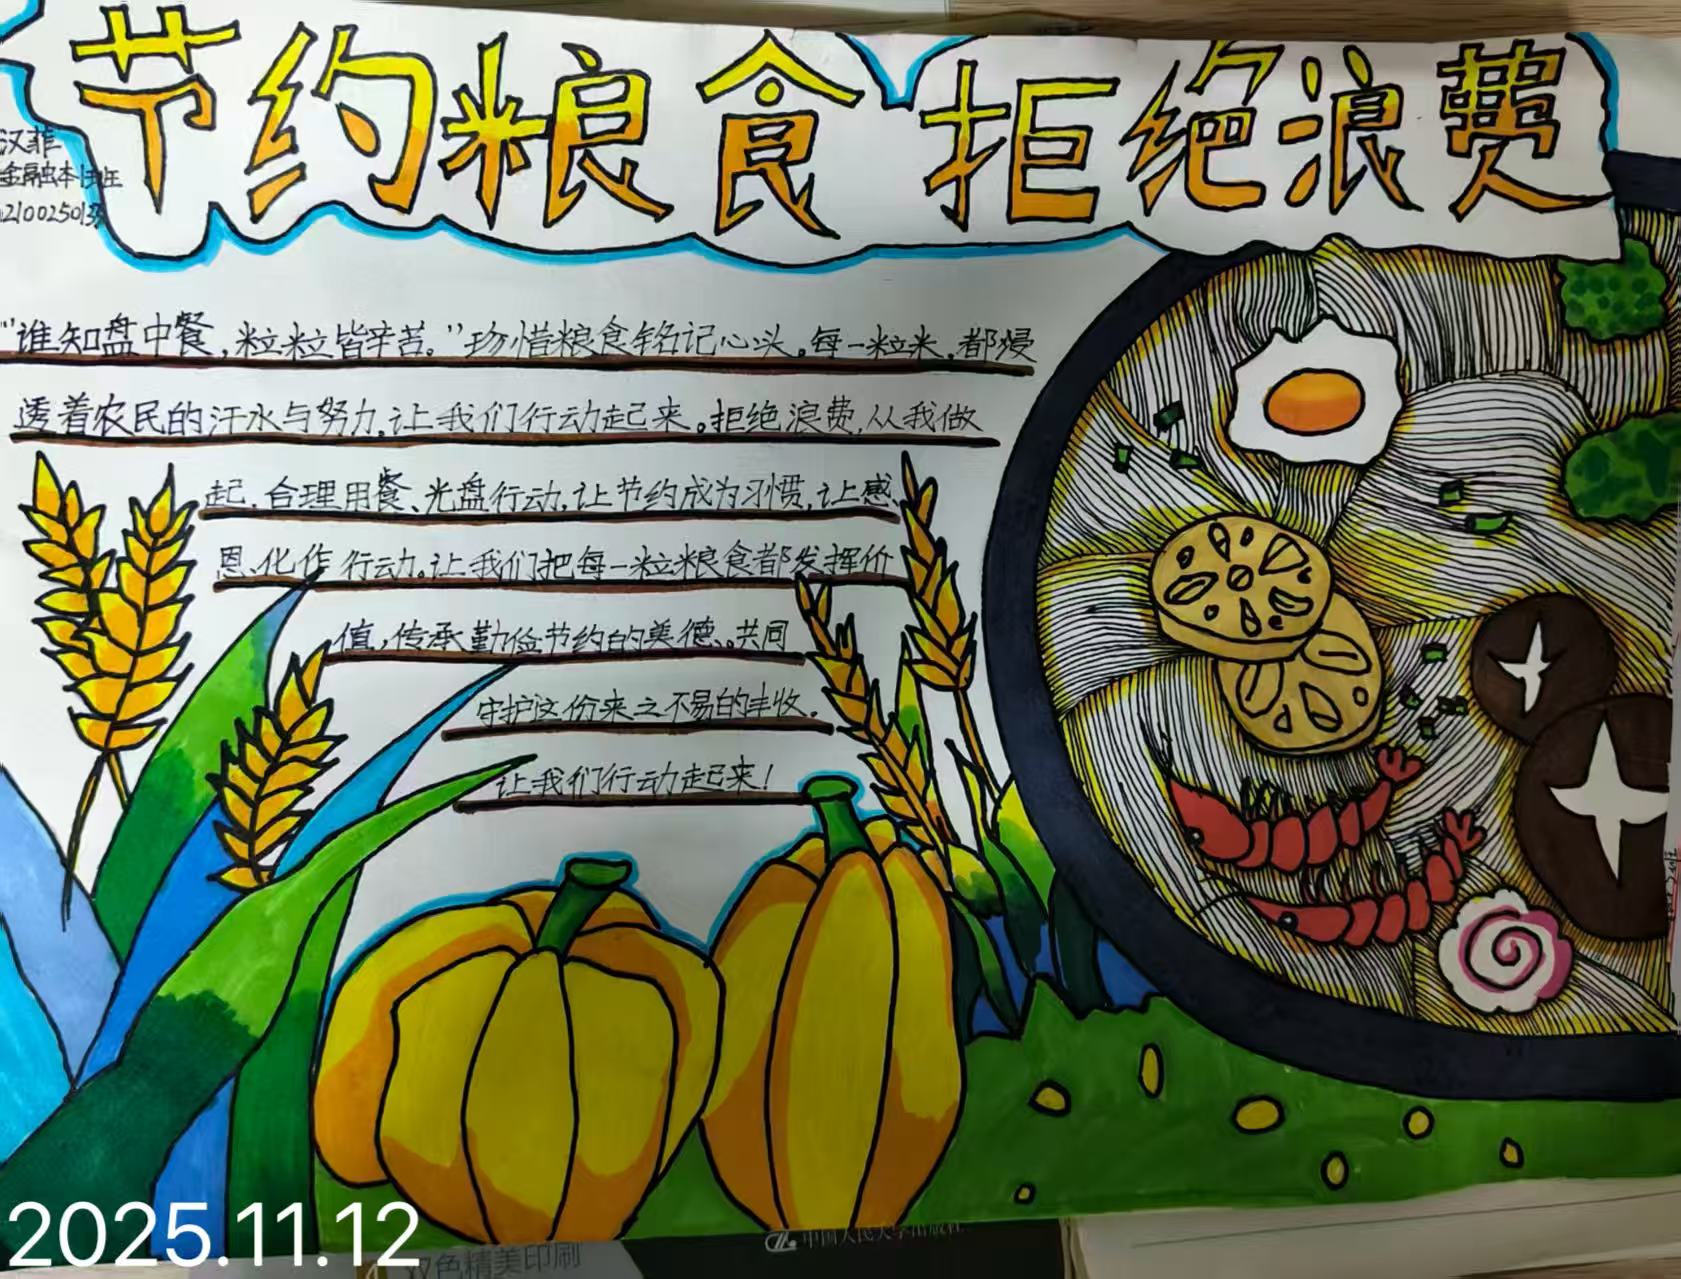 节约粮食 拒绝浪费
汉菲
金融本1班
21002501
"谁知盘中餐,粒粒皆辛苦。"珍惜粮食铭记心头。每一粒米,都浸
透着农民的汗水与努力,让我们行动起来。拒绝浪费,从我做
起、合理用餐、光盘行动,让节约成为习惯,让感
恩化作行动。让我们把每一粒粮食都发挥价
值,传承勤俭节约的美德、。共同
守护这份来之不易的丰收。
让我们行动起来!
2025.11.12
双色精美印刷
中国人民大学出版社